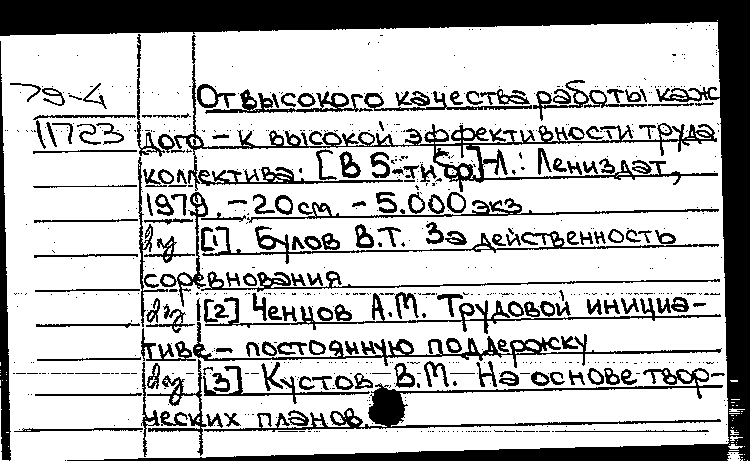 79-4 От высокого качества работы каж
11723 дого - к высокой эффективности труда
коллектива: [В 5-ти бр.]-Л.: Лениздат,
1979. - 20 см. - 5.000 экз.
[1]. Булов В.Т. За действенность
соревнования.
[2] Ченцов А.М. Трудовой инициа-
тиве - постоянную поддержку
[3] Кустов В.М. На основе твор-
ческих планов.